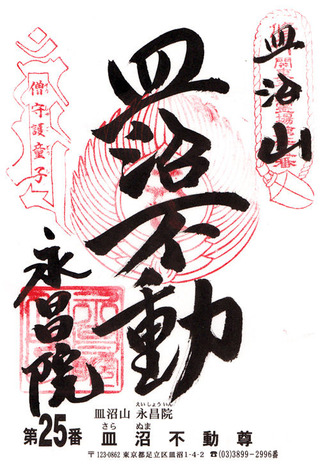 皿沼山
皿沼不動
永昌院
僧守護童子
えいしょういん
皿沼山 永昌院
さら ぬま
第25番 皿沼不動尊
〒123-0862 東京都足立区皿沼1-4-2 ☎(03)3899-2996番